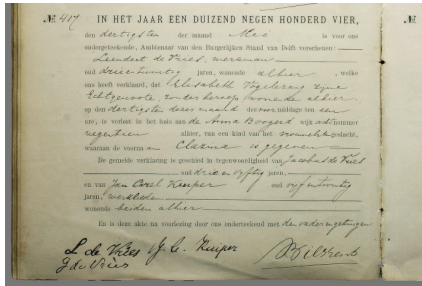 № 417 IN HET JAAR EEN DUIZEND NEGEN HONDERD VIER, №
den dertigsten der maand Mei is voor ons
ondergeteekende, Ambtenaar van den Burgerlijken Stand van Delft verschenen:
Leendert de Vries, werkman
oud drieëntwintig jaren, wonende alhier, welke
ons heeft verklaard, dat Elisabeth Vogelezang zijne
Echtgenoote, zonder beroep, wonende alhier
op den dertigsten dezer maand voormiddags ten een
ure, is verlost in het huis aan de Anna Boogerd wijk nummer
negentien alhier, van een kind van het vrouwelijk geslacht,
waaraan de voornaam Clazina is gegeven
De gemelde verklaring is geschied in tegenwoordigheid van Jacobus de Vries
oud drie en vijftig jaren,
en van Jan Carel Kuiper oud vijfentwintig
jaren, werklieden
wonende beiden alhier
En is deze akte na voorlezing door ons onderteekend met
L de Vries J. C. Kuiper
J de Vries